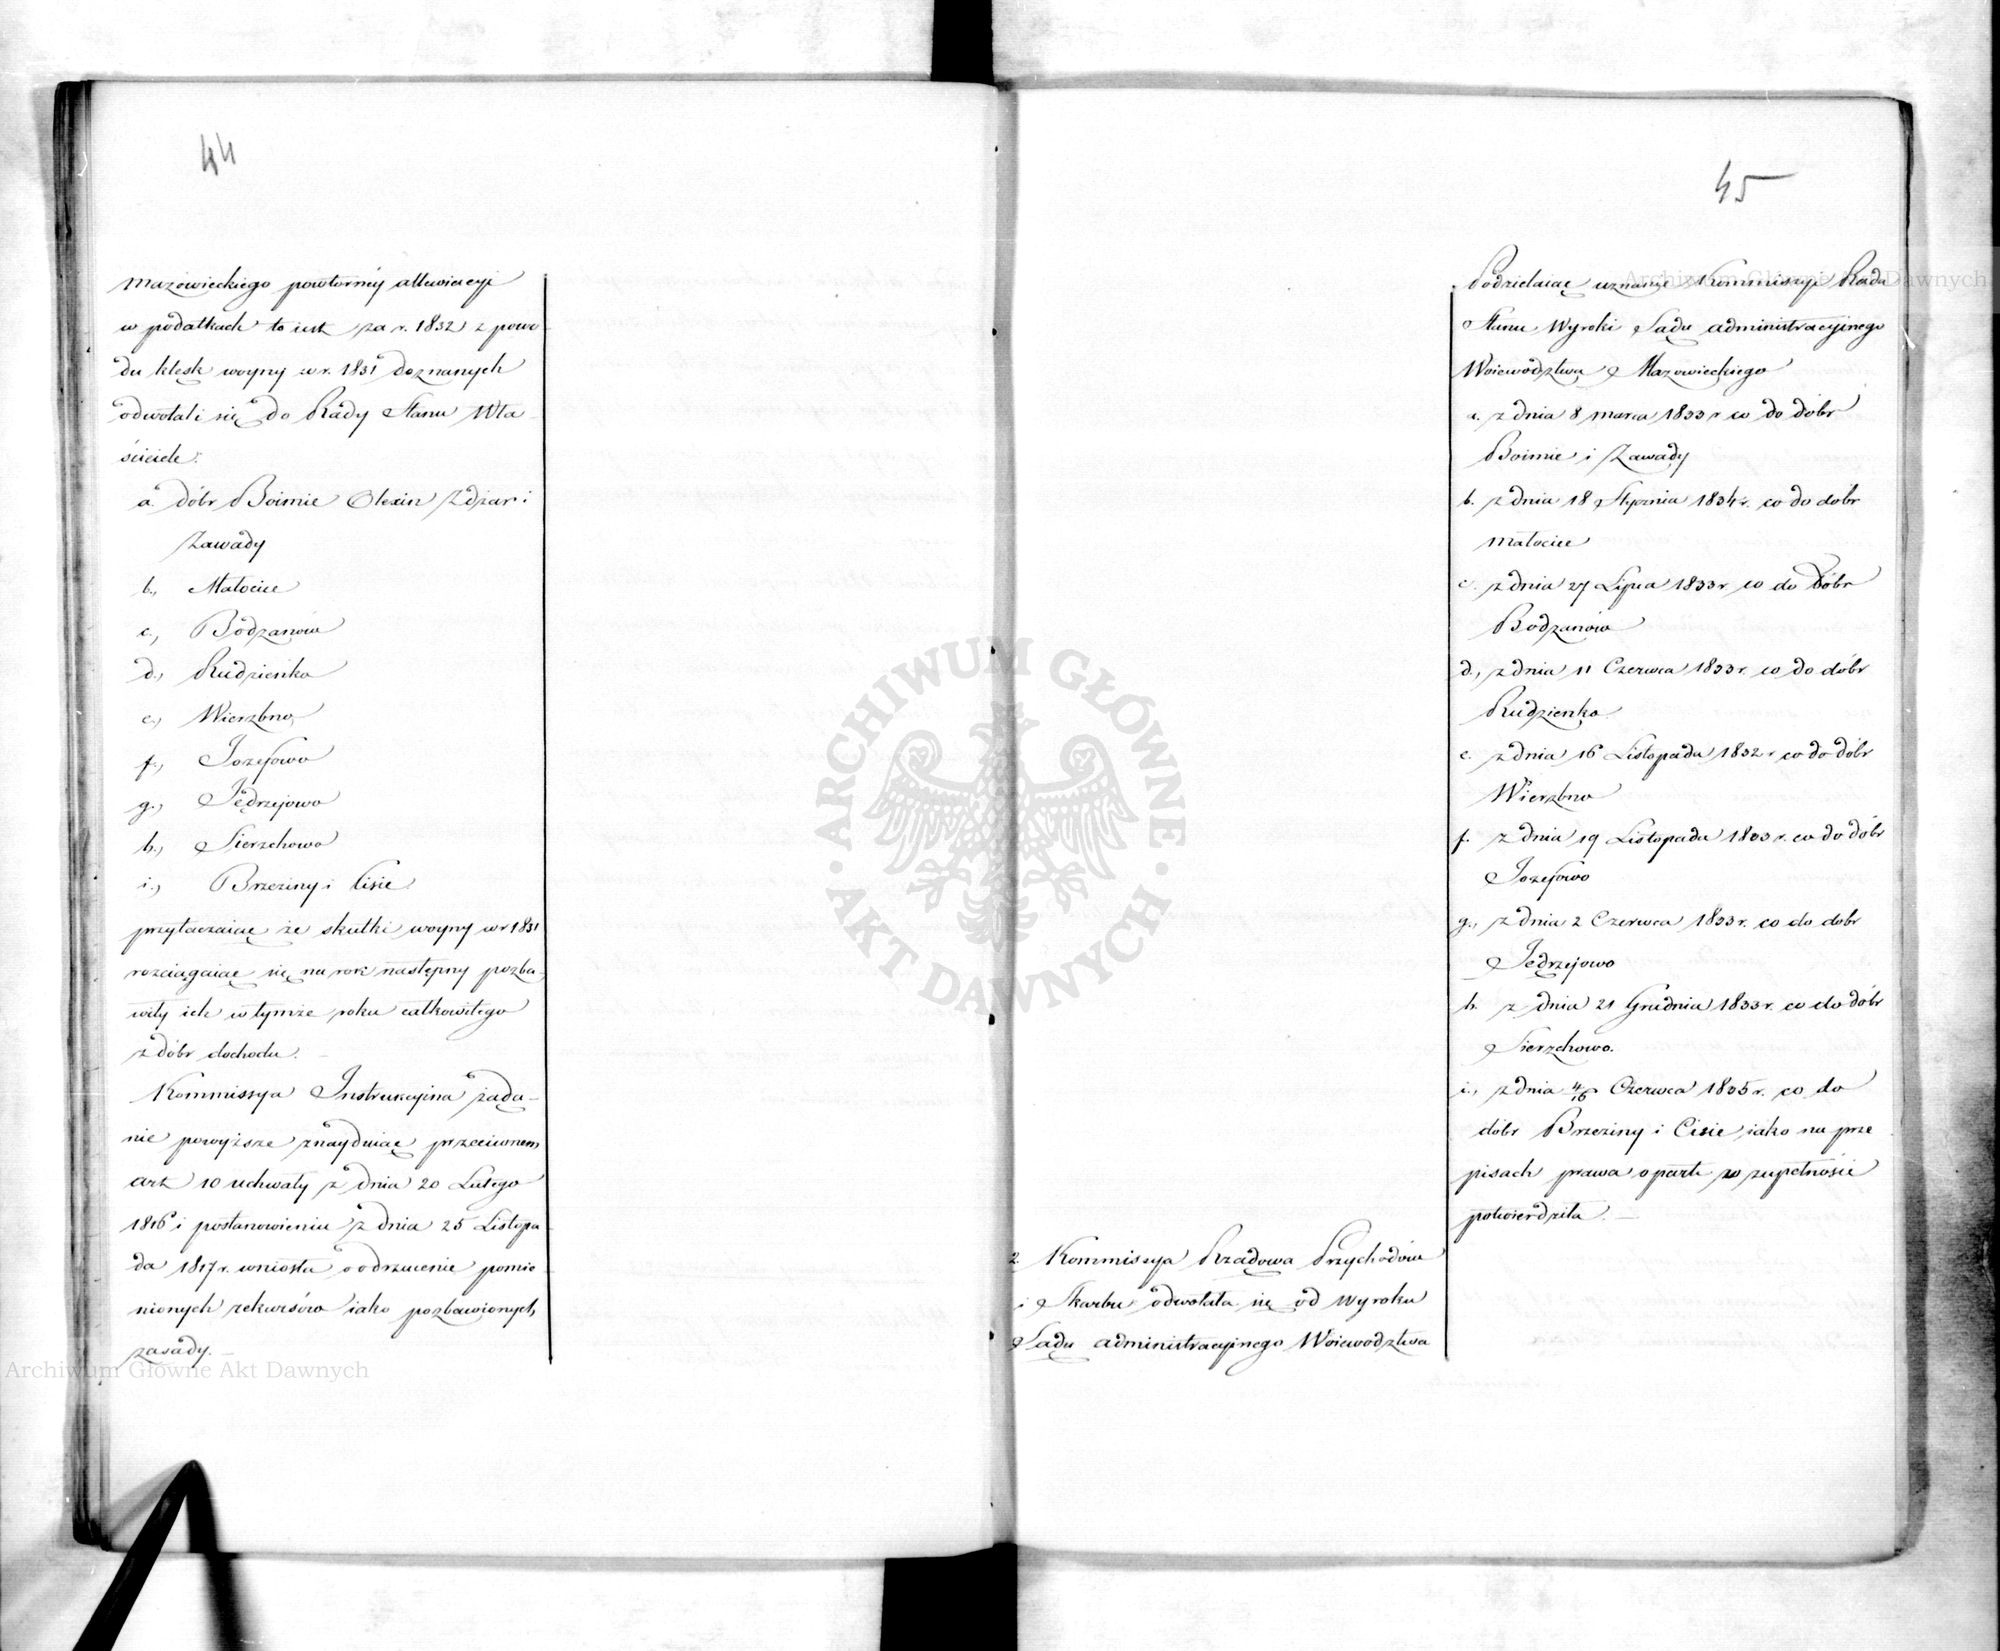 44
Mazowieckiego powtorney allewiacyi
w podatkach to iest za r. 1832 z powo-
du klęsk woyny w r. 1831 doznanych
odwołali się do Rady Stanu Wła-
ściciele:
a. dóbr Boimie Olexin Zdżar i
Zawady
b., Małocice
c., Bodzanów
d., Rudzienko
e., Wierzbno
f., Jozefowo
g., Jędrzejowo
h., Sierzchowo
i., Brzeziny i Cisie
przytaczaiąc że skutki woyny w r 1831
rozciągaiąc się na rok następny pozba-
wiły ich w tymże roku całkowitego
z dóbr dochodu. –
Kommissya Instrukcyina żąda-
nie powyższe znayduiąc przeciwnem
art 10 uchwały z dnia 20 Lutego
1816 i postanowieniu z dnia 25 Listopa
da 1817 r. wniosła o odrzucenie pomie-
nionych rekursów iako pozbawionych
zasady. –
45
Podzielaiąc uznanie Kommissyi Rada
Stanu Wyroki Sądu administracyinego
Woiewództwa Mazowieckiego
a. z dnia 8 marca 1833 r co do dóbr
Boimie i Zawady
b. z dnia 18 Stycznia 1834 r. co do dóbr
Małocice
c. z dnia 27 Lipca 1833 r co do Dóbr
Bodzanów
d., z dnia 11 Czerwca 1833 r. co do dóbr
Rudzienko
e. z dnia 16 Listopada 1832 r co do dóbr
Wierzbno
f. z dnia 19 Listopada 1833 r. co do dóbr
Jozefowo
g., z dnia 2 Czerwca 1833 r. co do dobr
Jędrzejowo
h. z dnia 21 Grudnia 1833 r. co do dóbr
Sierzchowo.
i., z dnia 4/16 Czerwca 1835 r. co do
dóbr Brzeziny i Cisie iako na prze
pisach prawa oparte w zupełności
potwierdziła. –
2. Kommissya Rządowa Przychodów
i Skarbu odwołała się od Wyroku
Sądu administracyinego Woiewodztwa
ARCHIWUM GŁÓWNE AKT DAWNYCH
Archiwum Główne Akt Dawnych
Archiwum Główne Akt Dawnych